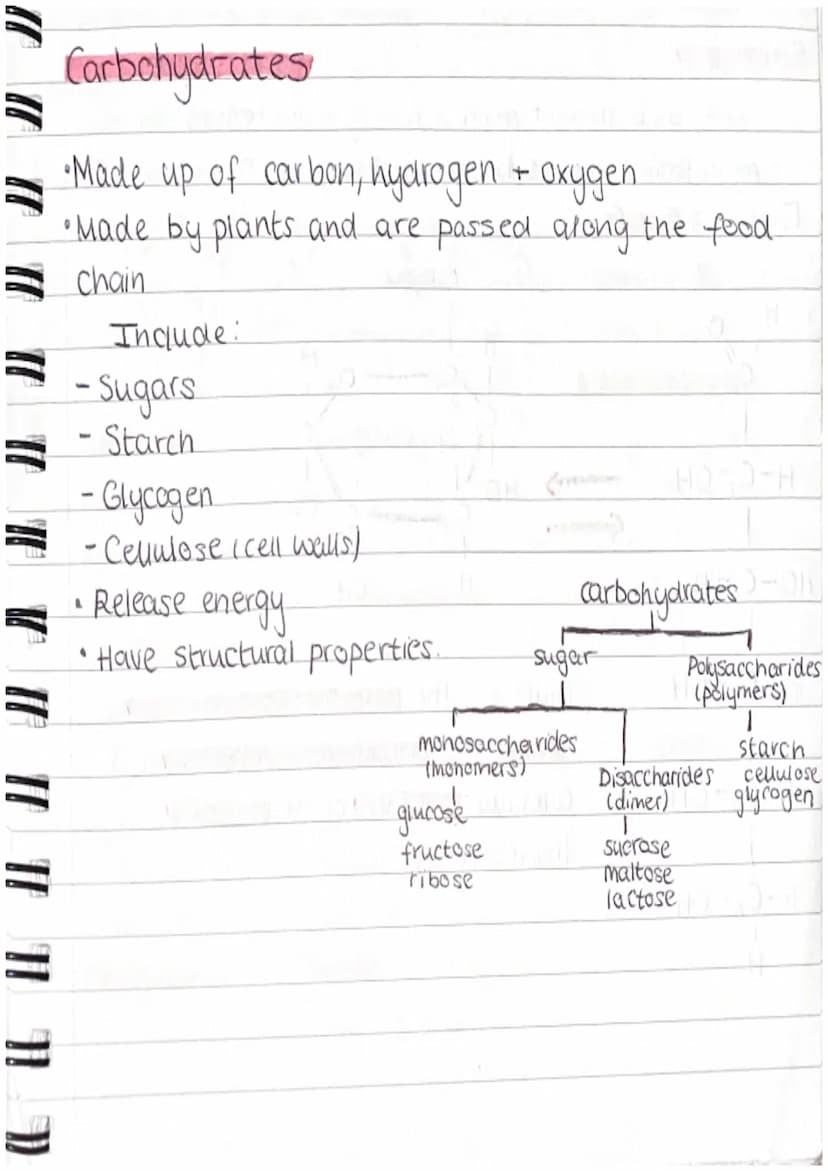 Carbohydrates
•Made up of carbon, hydrogen + oxygen
•Made by plants and are passed along the food
chain
Include:
- Sugars
- Starch
- Glycogen
- Cellulose (cell walls)
• Release energy
• Have structural properties.
carbohydrates
sugar
Polysaccharides
(polymers)
starch
cellulose
glycogen
monosaccharides
(monomers)
glucose
fructose
ribose
Disaccharides
(dimer)
sucrose
maltose
lactose